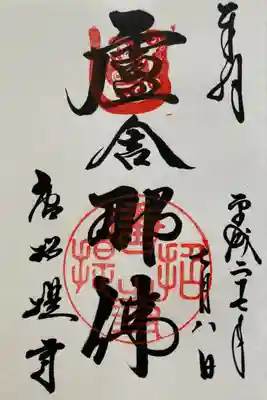 奉拝
平成二十七年
月八日
盧舎那佛
唐招提寺